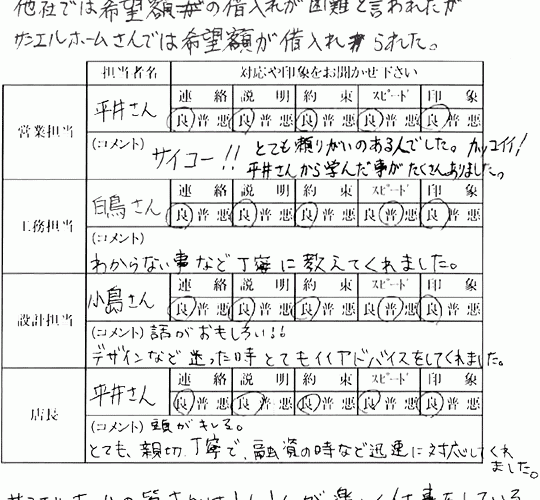 他社では希望額の借入れが困難と言われたが
サンエルホームさんでは希望額が借入れられた。
担当者名 対応や印象をお聞かせ下さい
営業担当 平井さん 連絡 説明 約束 スピード 印象
良 普 悪 良 普 悪 良 普 悪 良 普 悪 良 普 悪
(コメント) サイコー!! とても頼りがいのある人でした。カッコイイ!
平井さんから学んだ事がたくさんありました。
工務担当 白鳥さん 連絡 説明 約束 スピード 印象
良 普 悪 良 普 悪 良 普 悪 良 普 悪 良 普 悪
(コメント)
わからない事など丁寧に教えてくれました。
設計担当 小島さん 連絡 説明 約束 スピード 印象
良 普 悪 良 普 悪 良 普 悪 良 普 悪 良 普 悪
(コメント) 話がおもしろい!!
デザインなど迷った時とてもイイアドバイスをしてくれました。
店長 平井さん 連絡 説明 約束 スピード 印象
良 普 悪 良 普 悪 良 普 悪 良 普 悪 良 普 悪
(コメント) 頭がキレる。
とても、親切、丁寧で、融資の時など迅速に対応してくれ
ました。